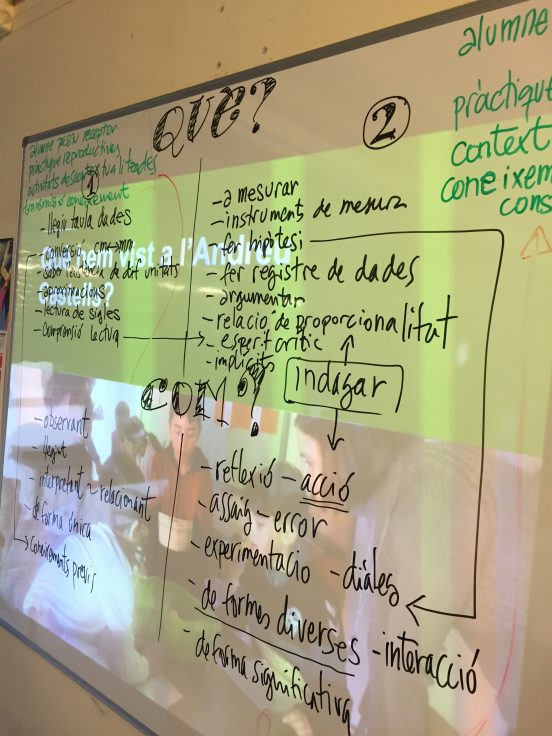 QUE?
2
alumne
pràctique
context
coneixem
cons
alumne passiu receptor
pràctiques reproductives
activitats descontextualitzades
transmissió coneixement
1
- llegir taula dades
- conversió cm → mm
- aproximacions
- lectura de sigles
- comprensió lectura
Què hem vist a l'Andreu
Castells?
- a mesurar
- instruments de mesura
- fer hipòtesi
- fer registre de dades
- argumentar
- relació de proporcionalitat
- esperit crític
- implicits
indagar
COM?
- observant
- llegint
- interpretant - relacionant
- de forma única
coneixements previs
- reflexió - acció
- assaig - error
- experimentacio - diàleg
- de formes diverses - interacció
- de forma significativa